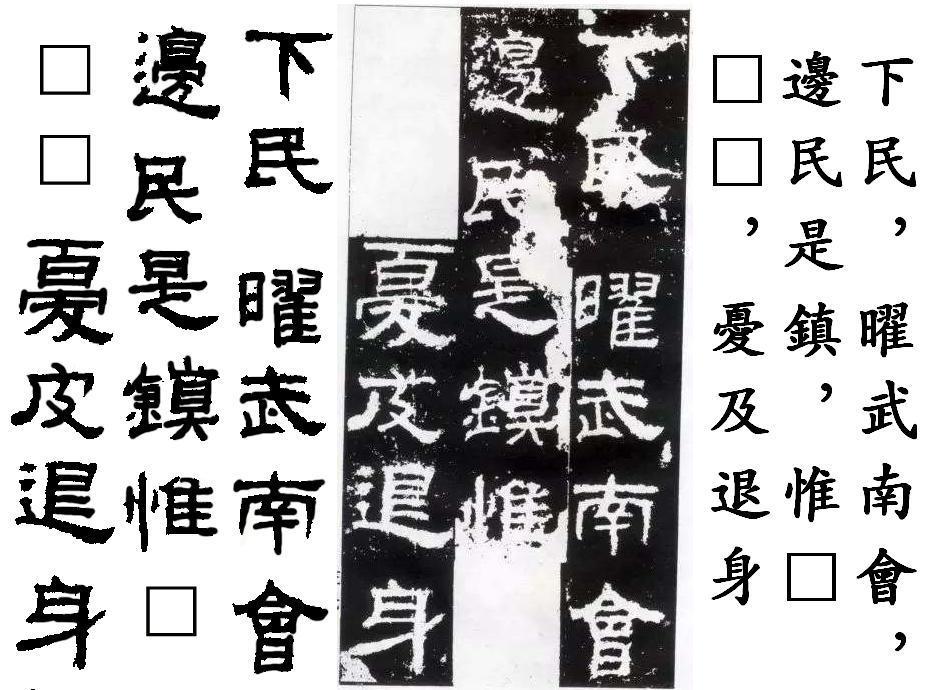 下民，曜武南會，
邊民是鎮，惟□
□□，憂及退身
下民曜武南會
邊民是鎮惟
憂及退身
下民曜武南會
邊民是鎮惟□
□□憂及退身